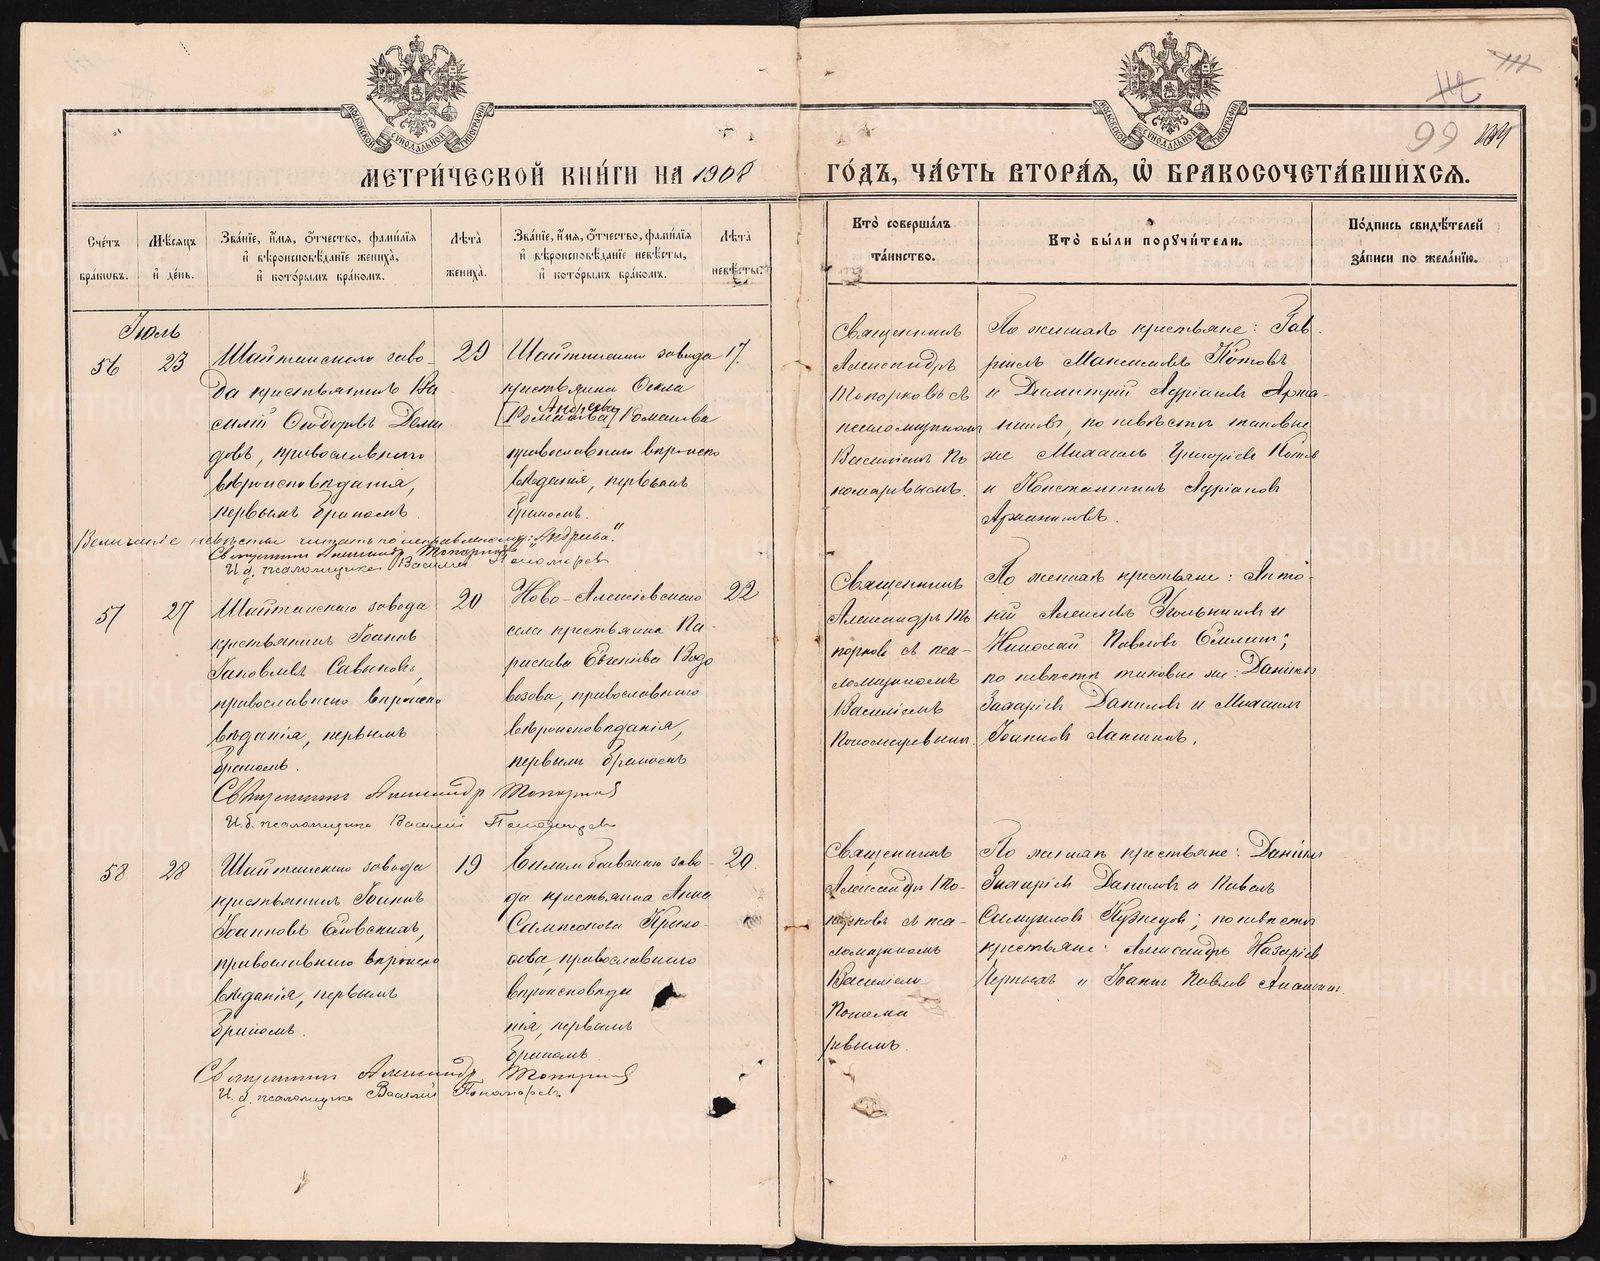 МЕТРИ́ЧЕСКОЙ КНИ́ГИ НА 1908 ГО́ДЪ, ЧА́СТЬ ВТОРА́Я, Ѡ҆ БРАКОСОЧЕТА́ВШИХСЯ.
112
111
99
МОСКОВСКОЙ СѴНОДАЛЬНОЙ ТИПОГРАФІИ
МОСКОВСКОЙ СѴНОДАЛЬНОЙ ТИПОГРАФІИ
Сче́тъ
бра́кѡвъ.
Мѣ́сѧцъ
и҆ де́нь.
Зва́нїе, и҆́мѧ, ѻ҆́тчество, фами́лїѧ
и҆ вѣроисповѣ́данїе жениха̀,
и҆ кото́рымъ бра́комъ.
Лѣ́та
жениха̀.
Зва́нїе, и҆́мѧ, ѻ҆́тчество, фами́лїѧ
и҆ вѣроисповѣ́данїе невѣ́сты,
и҆ кото́рымъ бра́комъ.
Лѣ́та
невѣ́сты.
Кто̀ соверша́лъ
та́инство.
Кто̀ бы́ли порꙋчи́тели.
По́дпись свидѣ́телей
за́писи по жела́нїю.
Іюль
56
23
Шайтанскаго заво-
да крестьянинъ Ва
силій Ѳеодоровъ Деми
довъ, православнаго
вѣроисповѣданія,
первымъ бракомъ.
29
Шайтанскаго завода
крестьянка Ѳекла
Андреева
[Романова] Романова
православнаго вѣроиспо
вѣданія, первымъ
бракомъ.
17.
Священникъ
Александръ
Топорковъ съ
псаломщикомъ
Василіемъ По
номаревымъ.
По женихѣ крестьяне: Гав-
риилъ Максимовъ Котовъ
и Димитрій Адріановъ Аржа-
никовъ, по невѣстѣ таковые
же Михаилъ Григорьевъ Котов
и Константинъ Адріановъ
Аржанниковъ.
Величаніе невѣсты читать по исправленному: "Андреева".
Священникъ Александръ Топорковъ
И. д. псаломщика Василій Пономаревъ
57
27
Шайтанскаго завода
крестьянинъ Іоаннъ
Іаковлевъ Савыковъ,
православнаго вѣроиспо
вѣданія, первымъ
бракомъ.
20
Ново-Алексѣевскаго
села крестьянка Па-
раскева Евгеніева Водо
возова, православнаго
вѣроисповѣданія,
первымъ бракомъ
22
Священникъ
Александръ То
порковъ съ пса-
ломщикомъ
Василіемъ
Пономаревымъ.
По женихѣ крестьяне: Анто-
ній Алексѣевъ Угольниковъ и
Николай Павловъ Емлинъ;
по невѣстѣ таковые же: Даніилъ
Захаріевъ Даниловъ и Михаилъ
Іоанновъ Лапшинъ.
Священникъ Александръ Топорковъ
И. д. псаломщика Василій Пономаревъ
58
28
Шайтанскаго завода
крестьянинъ Іоаннъ
Іоанновъ Еловскихъ,
православнаго вѣроиспо
вѣданія, первымъ
бракомъ.
19
Билимбаевскаго заво-
да крестьянка Анна
Сампсонова Крыло-
сова, православнаго
вѣроисповѣда
нія, первымъ
бракомъ.
20
Священникъ
Александръ То-
порковъ съ пса-
ломщикомъ
Василіемъ
Понома
ревымъ.
По женихѣ крестьяне: Даніилъ
Захаріевъ Даниловъ и Павелъ
Самуиловъ Кузнецовъ; по невѣстѣ
крестьяне: Александръ Назаріевъ
Черныхъ и Іоаннъ Павловъ
Священникъ Александръ Топорковъ
И. д. псаломщика Василій Пономаревъ
METRIKI.GASO-URAL.RU